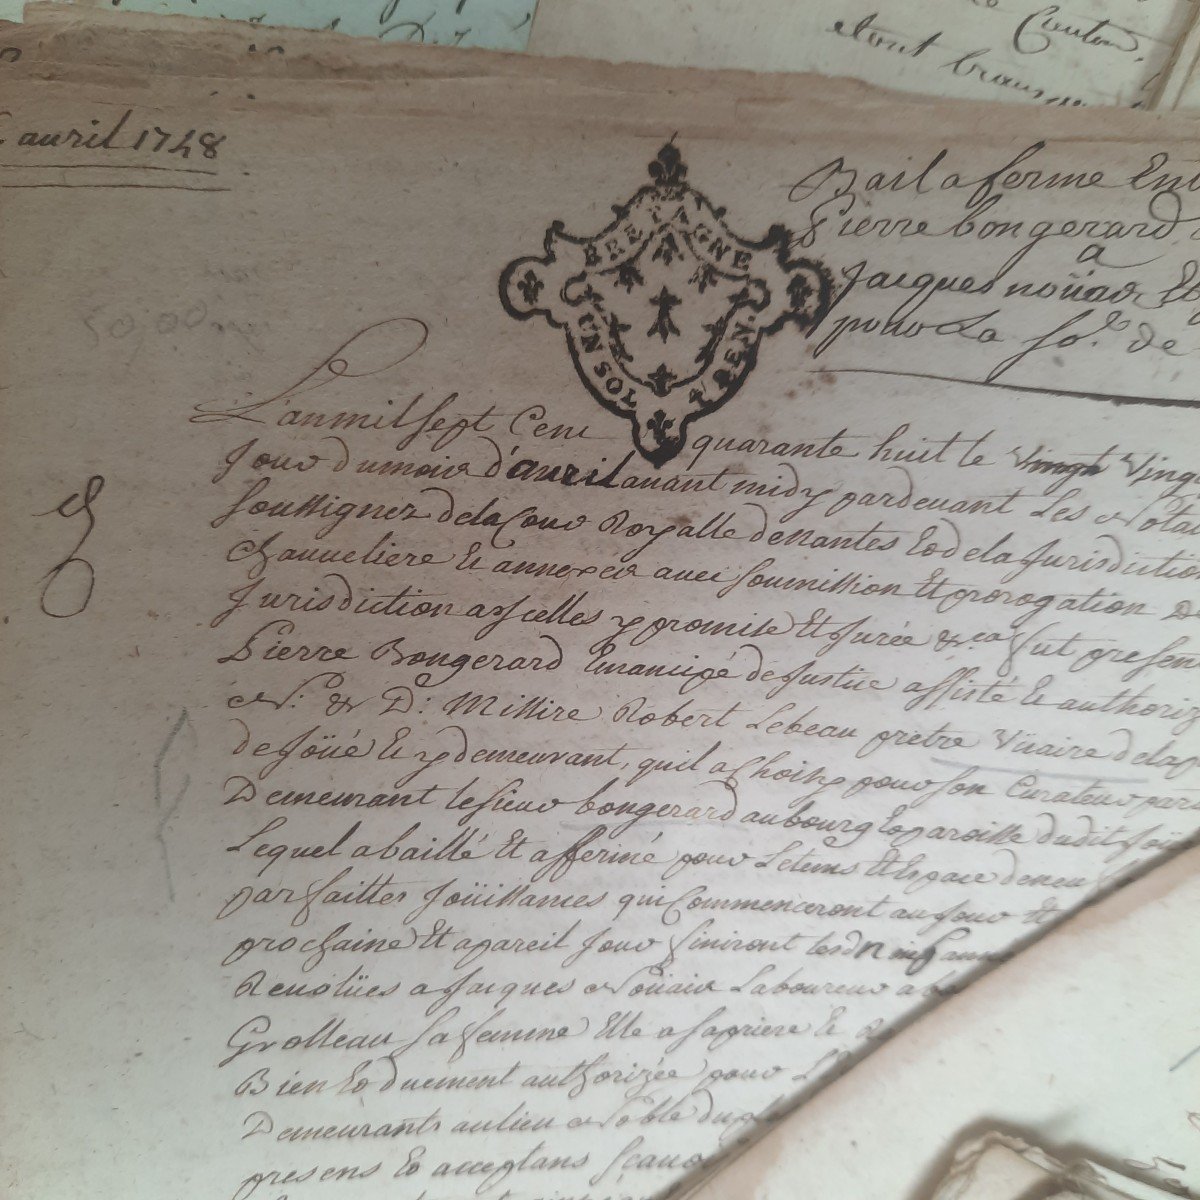 Couton
avril 1748
Bail a ferme Ent
Pierre bongerard
a
Jacques noüau Et
pour La so.e de
BRETAGNE
UN SOL 4 DEN.
L'an mil sept Cent quarante huit le vingt Ving
Jour du mois d'avril avant midy pardevant Les Nota
soussignez de la Cour Royalle de Nantes Et de la Jurisdiction
Et annexes avec soumission Et prorogation D
Jurisdiction a Icelles y promise Et Jurée &.ca fut presen
Pierre Bongerard Emancipé de Justice assisté Et authoriz
N. & D. Missire Robert Lebeau pretre Vicaire de la p
de Joüé Et y demeurant, quil a Choisy pour son Curateur par
Demeurant le sieur bongerard au bourg Et paroisse dudit Joü
Lequel a baillé Et affermé pour Le tems Et Espace de neu
parfaittes Joüissances qui Commenceront au Jour Et
prochaine Et a pareil Jour finiront lesd. neuf ann
Revolües a Jacques Noüau Laboureur a b
Grolleau sa femme Elle a sa priere Et R
Bien Et duement authorizée pour L
Demeurants au lieu Noble du
presens Et acceptans scavoi